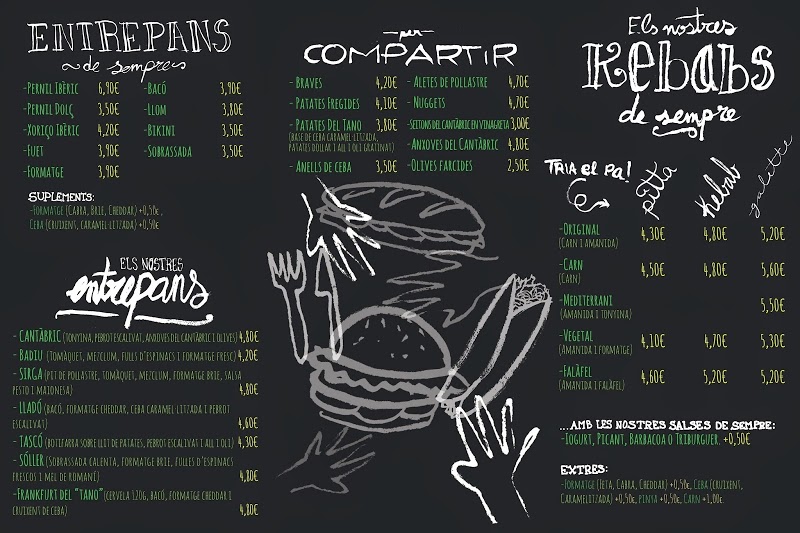 ENTREPANS
de sempre
-PERNIL IBÈRIC 6,90€
-PERNIL DOLÇ 3,50€
-XORIÇO IBÈRIC 4,20€
-FUET 3,90€
-FORMATGE 3,90€
-BACÓ 3,90€
-LLOM 3,80€
-BIKINI 3,50€
-SOBRASSADA 3,50€
SUPLEMENTS:
-FORMATGE (CABRA, BRIE, CHEDDAR) +0,50€,
CEBA (CRUIXENT, CARAMEL·LITZADA) +0,50€
ELS NOSTRES
entrepans
- CANTÀBRIC (TONYINA, PEBROT ESCALIVAT, ANXOVES DEL CANTÀBRIC I OLIVES) 4,80€
- BADIU (TOMÀQUET, MEZCLUM, FULLS D'ESPINACS I FORMATGE FRESC) 4,20€
- SIRGA (PIT DE POLLASTRE, TOMÀQUET, MEZCLUM, FORMATGE BRIE, SALSA
PESTO I MAIONESA) 4,80€
- LLADÓ (BACÓ, FORMATGE CHEDDAR, CEBA CARAMEL·LITZADA I PEBROT
ESCALIVAT) 4,60€
- TASCÓ (BOTIFARRA SOBRE LLIT DE PATATES, PEBROT ESCALIVAT I ALL I OLI) 4,30€
- SÓLLER (SOBRASSADA CALENTA, FORMATGE BRIE, FULLES D'ESPINACS
FRESCOS I MEL DE ROMANÍ) 4,80€
-FRANKFURT DEL "TANO" (CERVELA 120G, BACÓ, FORMATGE CHEDDAR I
CRUIXENT DE CEBA) 4,80€
per
COMPARTIR
- BRAVES 4,20€
- PATATES FREGIDES 4,10€
- PATATES DEL TANO 3,80€
(BASE DE CEBA CARAMEL·LITZADA,
PATATES DOLLAR I ALL I OLI GRATINAT)
- ANELLS DE CEBA 3,50€
- ALETES DE POLLASTRE 4,70€
- NUGGETS 4,70€
-SEITONS DEL CANTÀBRIC EN VINAGRETA 3,00€
-ANXOVES DEL CANTÀBRIC 4,80€
-OLIVES FARCIDES 2,50€
Els nostres
Kebabs
de sempre
TRIA el pa!
pitta
Kebab
galette
-ORIGINAL 4,30€ 4,80€ 5,20€
(CARN I AMANIDA)
-CARN 4,50€ 4,80€ 5,60€
(CARN)
-MEDITERRANI 5,50€
(AMANIDA I TONYINA)
-VEGETAL 4,10€ 4,70€ 5,30€
(AMANIDA I FORMATGE)
-FALÀFEL 4,60€ 5,20€ 5,20€
(AMANIDA I FALÀFEL)
...AMB LES NOSTRES SALSES DE SEMPRE:
-IOGURT, PICANT, BARBACOA O TRIBURGUER. +0,50€
EXTRES:
-FORMATGE (FETA, CABRA, CHEDDAR) +0,50€, CEBA (CRUIXENT,
CARAMELITZADA) +0,50€, PINYA +0,50€, CARN +1,00€.